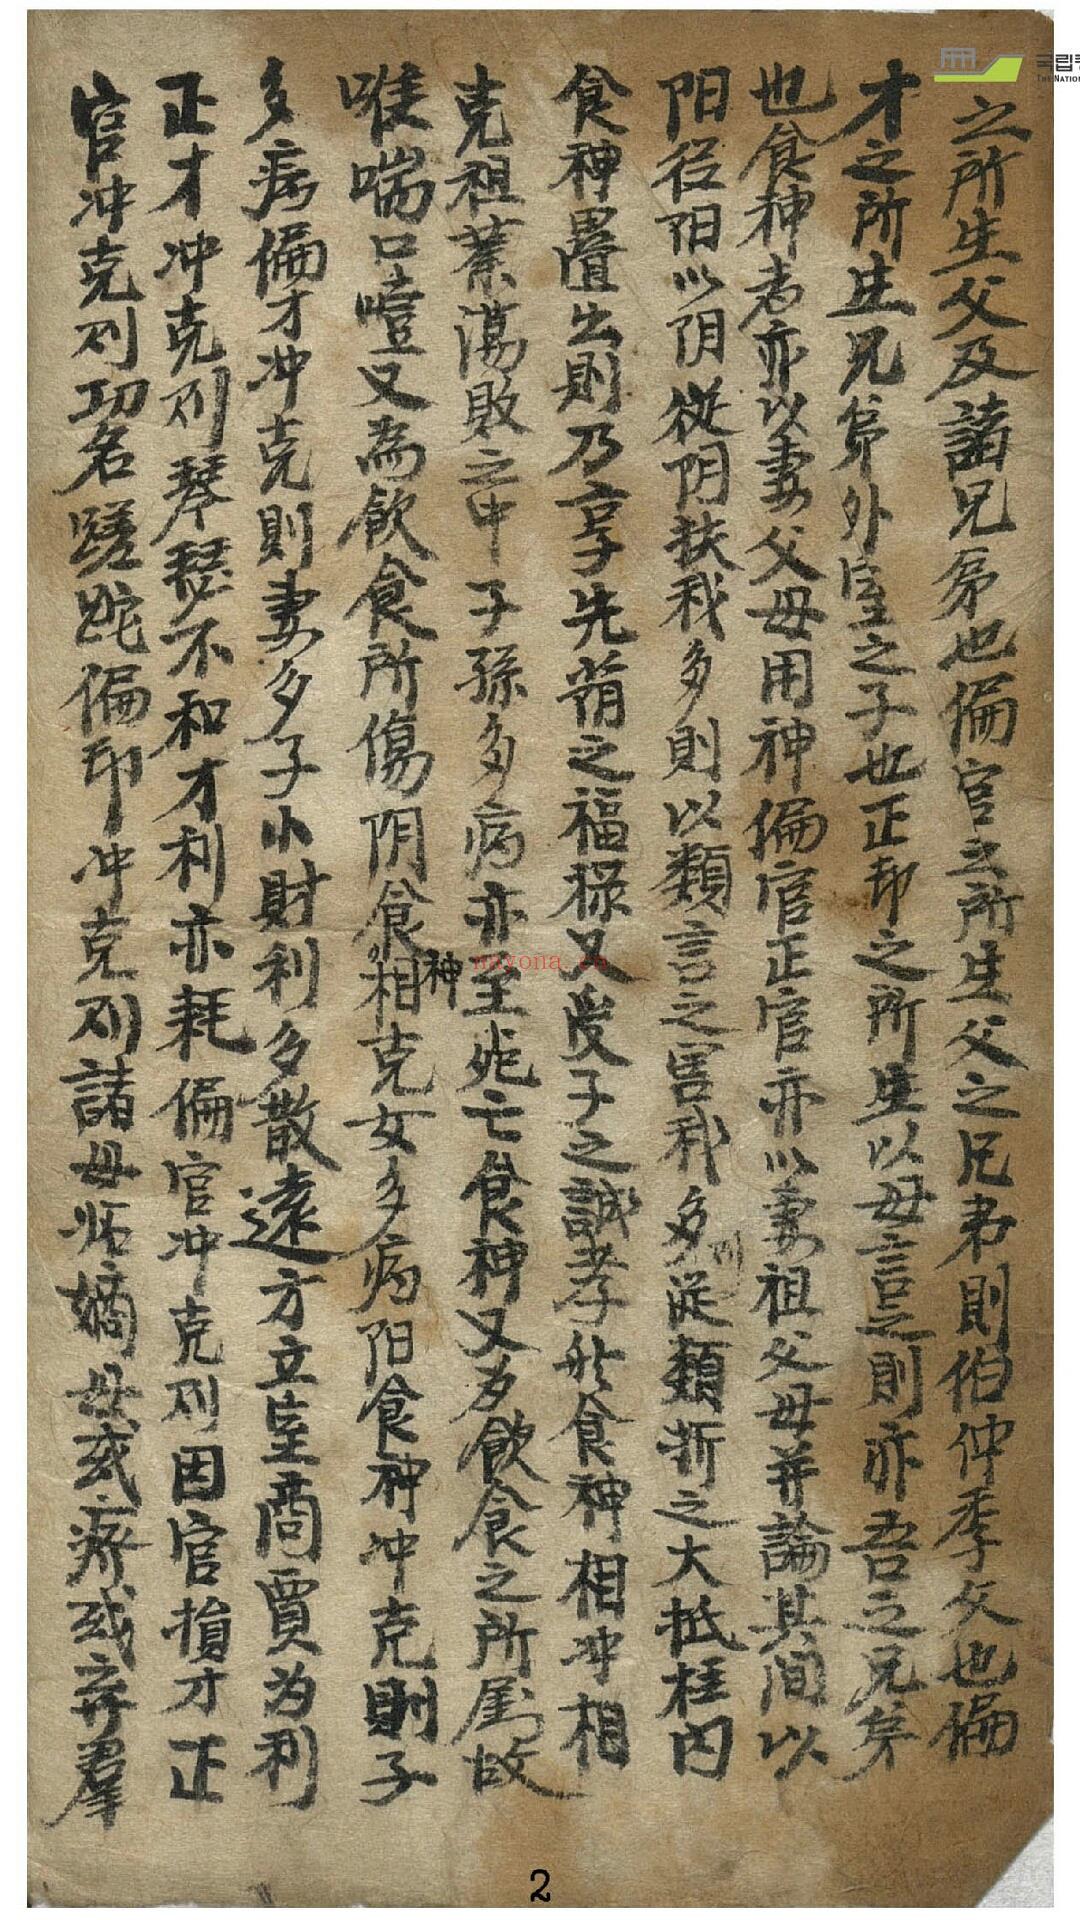 之所生父及諸兄弟也偏官之所生父之兄弟則伯仲季父也偏
才之所生兄弟外室之子也正却之所生以母言之則亦吾之兄弟
也食神者亦以妻父母用神偏官正官亦以妻祖父母并論其间以
阳从阳以阴從阴扶我多則以類言之害我多則從類折之大抵柱内
食神疊出則乃享先蔭之福禄又受子之誠孝於食神相冲相
克祖業蕩敗之中子孫多病亦至死亡食神又为飲食之所属故
唯喘口噎又為飲食所傷阴食神相克女多病阳食神冲克則子
多病偏才冲克則妻多子小財利多散遠方立室商賈为利
正才冲克则琴瑟不和才利亦耗偏官冲克则因官損才正
官冲克则功名蹉跎偏印冲克则諸母妬嫡母或病或弃羣
国립
THE NATION
nayona.cn
2